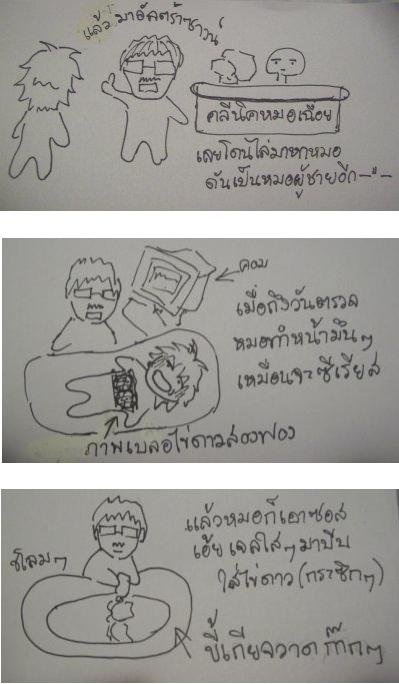 แล้วมาอัลตร้าซาวน์
คลีนิคหมอเฉื่อย
เลยโดนไล่มาหาหมอ
ดันเป็นหมอผู้ชายอีก -"-
คอม
เมื่อถึงวันตรวจ
หมอทำหน้ามึนๆ
เหมือนจะซีเรียส
ภาพเบลอไข่ดาวสองฟอง
แล้วหมอก็เอาซอส
เอ้ย เจลใสๆ มาบีบ
ใส่ไข่ดาว (กระซิกๆ)
ชโลมๆ
ขี้เกียจวาด ก๊ากๆ